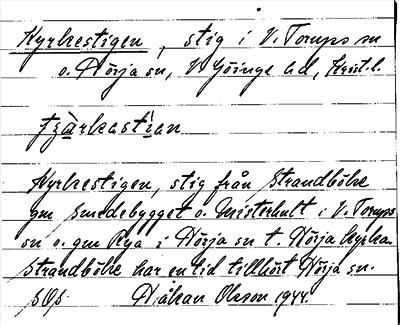 Kyrkestigen, stig i V. Torups sn
o. Nörja sn, V. Göinge hd, Krist. l.
tzàrkastìan
Kyrkestigen, stig från Strandböke
gm Smedebygget o. Misterhult i V. Torups
sn o. gm Rya i Nörja sn t. Nörja kyrka.
Strandböke har en tid tillhört Nörja sn.
SOs. Håkan Olsson 1944.